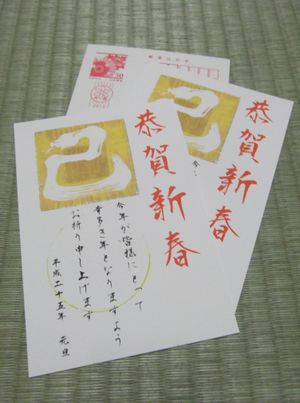 恭賀新春
巳
今年が皆様にとって
幸多き年となりますよう
お祈り申し上げます
平成二十五年 元旦
恭賀新春
巳
50